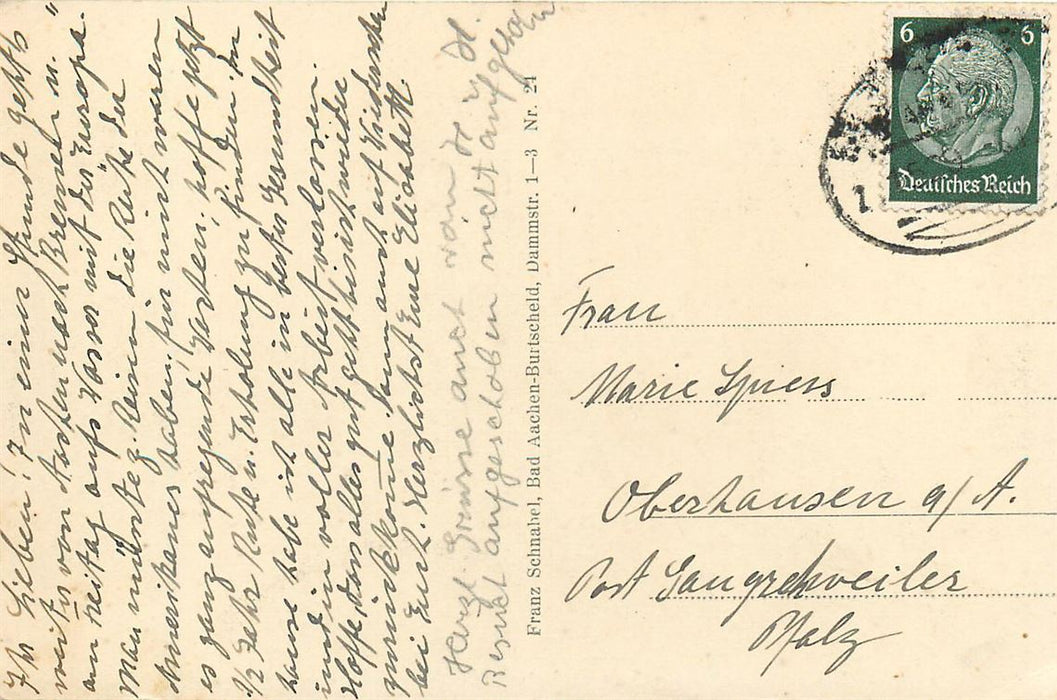 Ihr Lieben! In einer Stunde geht's
weiter von Aachen nach Bremen u.
am Freitag aufs Wasser mit der Europa.
Man müsste z. Leiren die Ruhe der
Amerikaner haben, für mich waren
es ganz aufregende Wochen; hoffe jetzt
1/2 Jahr Ruhe u. Erholung zu finden. In
hause habe ich alle in bester Gesundheit
und in voller Arbeit verlassen.
Hoffe dass alles gut geht bis ich wieder
zurückkomme. Dann auch auf Wiedersehen
bei Euch. Herzlichst Eure Elisabeth.
Herzl. Grüsse auch von H. u. H.
Besuch aufgeschoben nicht aufgehoben
Franz Schnabel, Bad Aachen-Burtscheid, Dammstr. 1—3 Nr. 24
6 6
Deutsches Reich
Frau
Marie Spiess
Oberhausen a/A.
Post Gangrehweiler
Pfalz